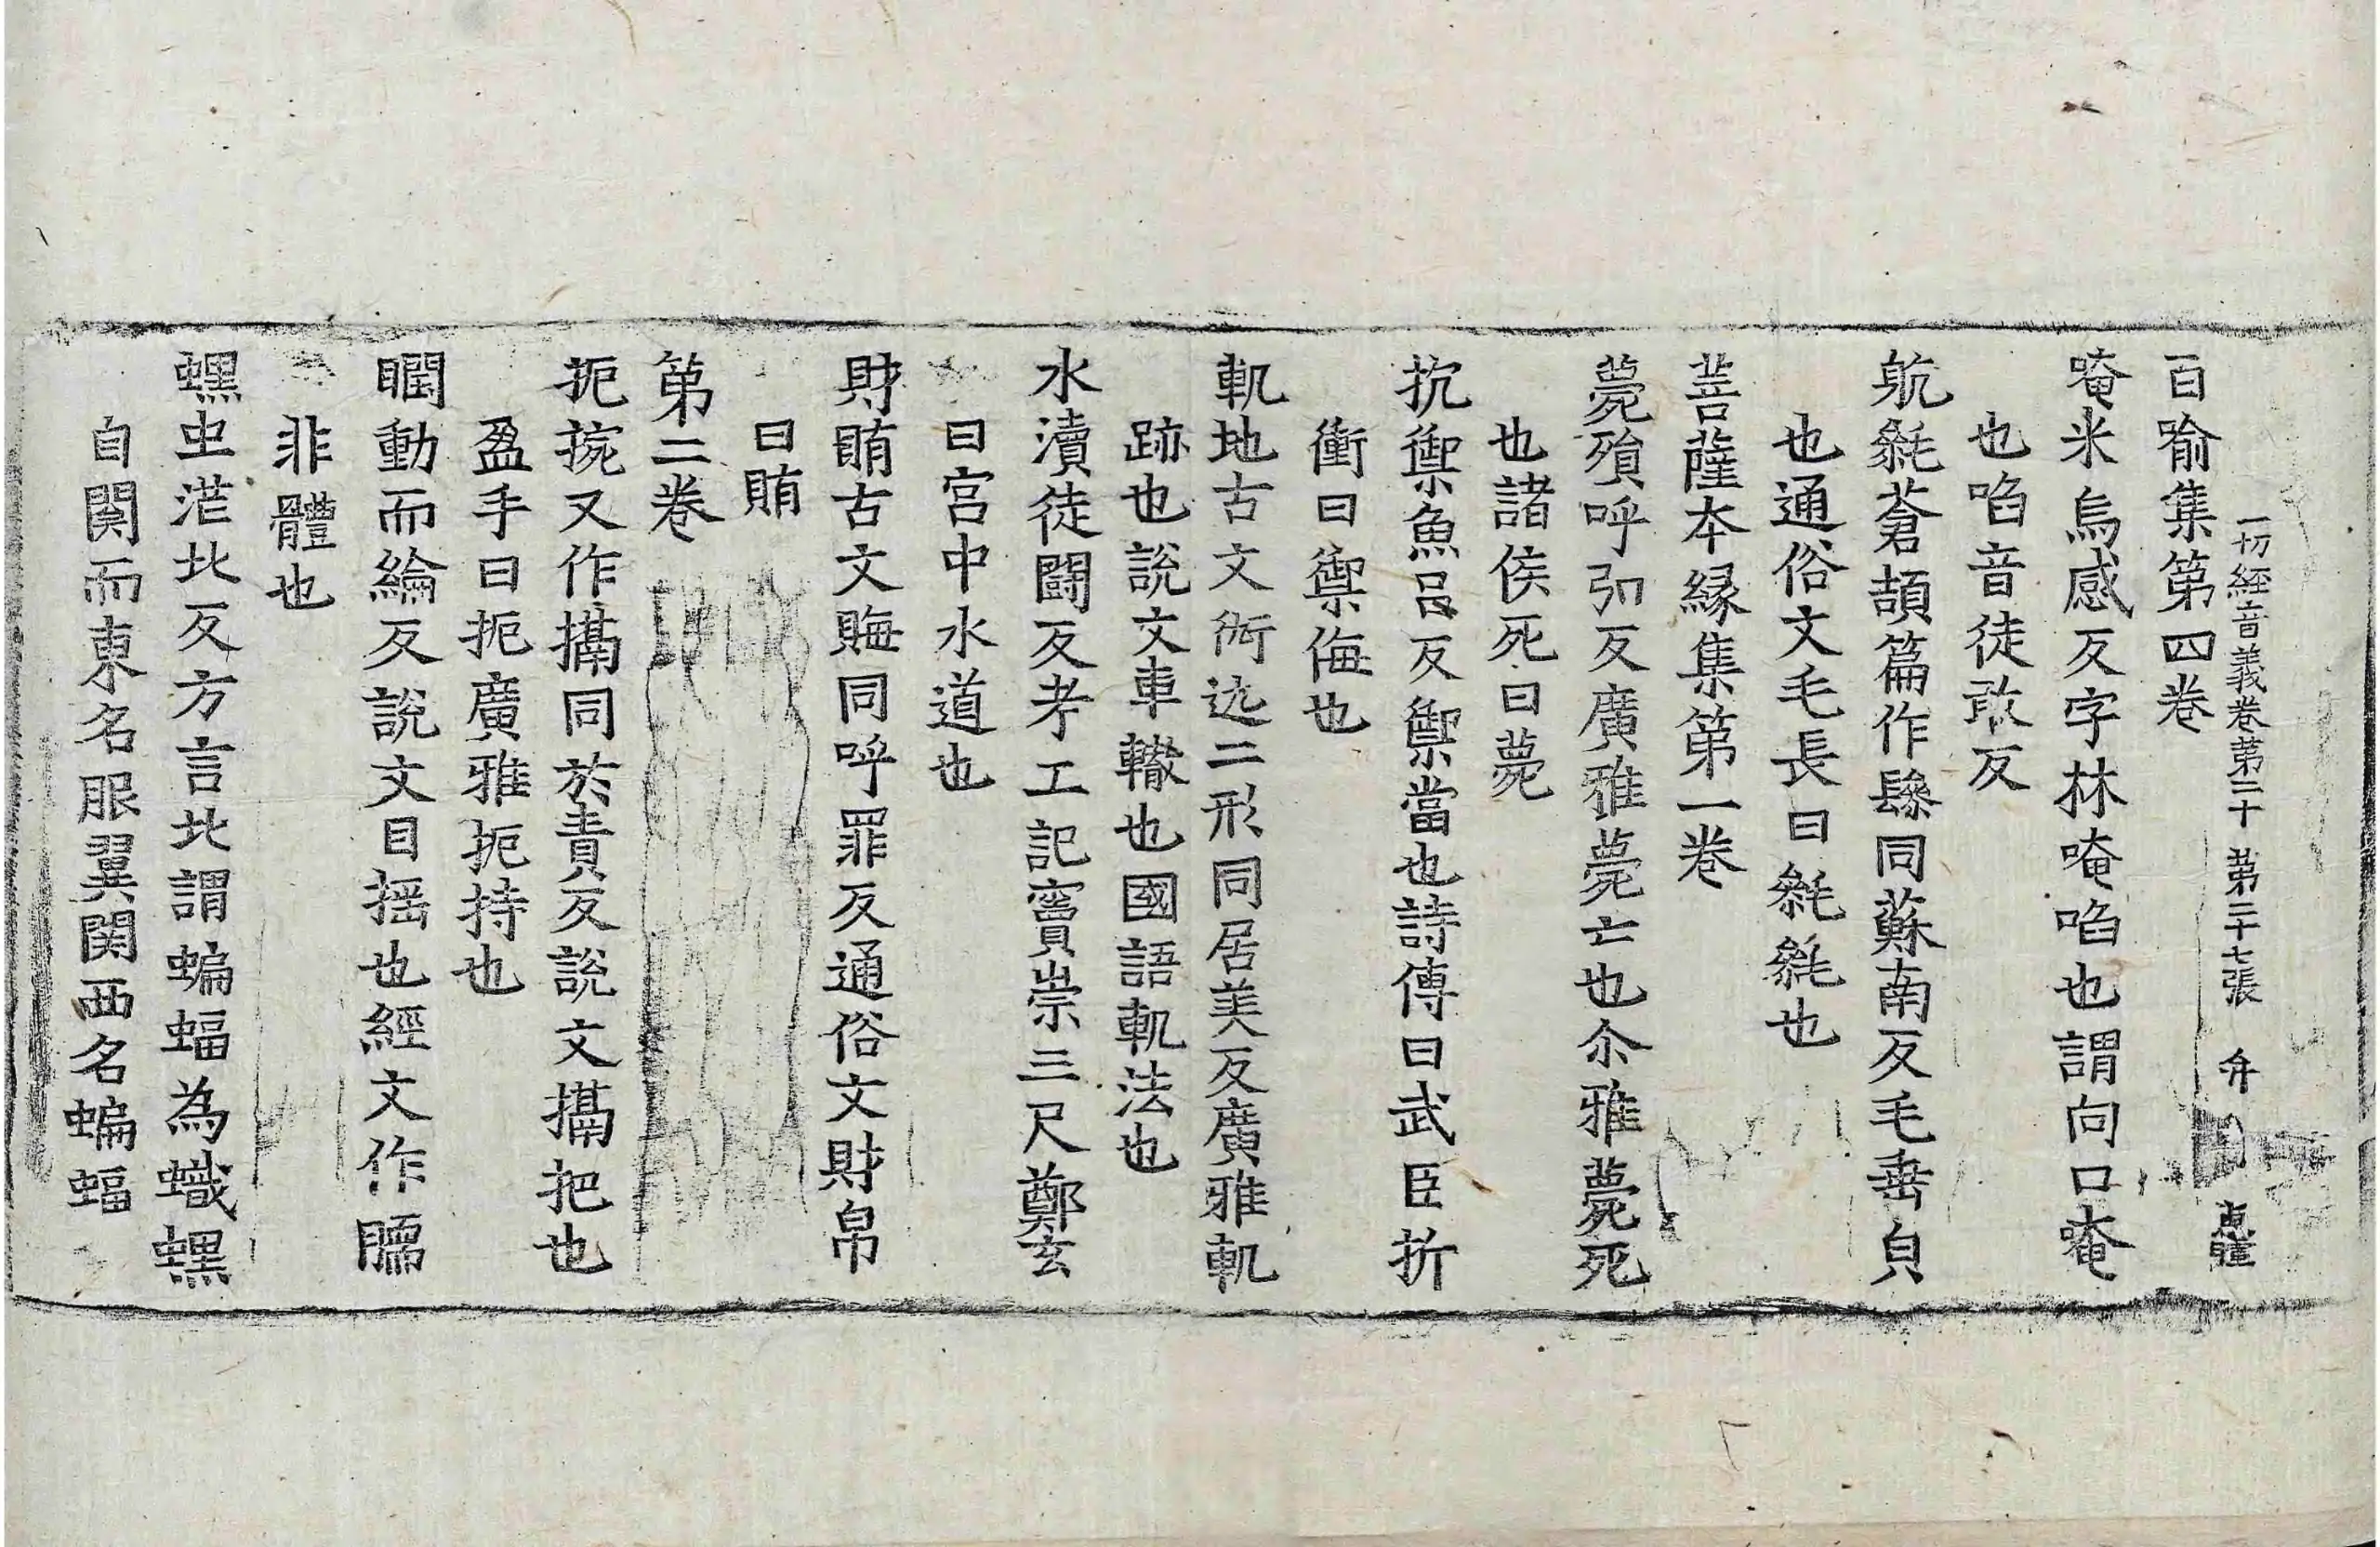 一切經音義卷第二十 第二十七張 弁
百喻集第四卷
唵米烏感反字林唵啗也謂向口唵
也啗音徒敢反
毿毿蒼頡篇作㲚同蘇南反毛垂皃
也通俗文毛長曰毿毿也
菩薩本緣集第一卷
薨殞呼弘反廣雅薨亡也尒雅薨死
也諸侯死曰薨
抗禦魚呂反禦當也詩傳曰武臣折
衝曰禦侮也
軌地古文𨒥远二形同居美反廣雅軌
跡也說文車轍也國語軌法也
水瀆徒鬪反考工記竇崇三尺鄭玄
曰宮中水道也
財賄古文賄同呼罪反通俗文財帛
曰賄
第二卷
扼捥又作搹同於責反說文搹把也
盈手曰扼廣雅扼持也
瞤動而綸反說文目搖也經文作臑
非體也
蟔虫茫北反方言北謂蝙蝠為蟙蟔
自関而東名服翼関西名蝙蝠